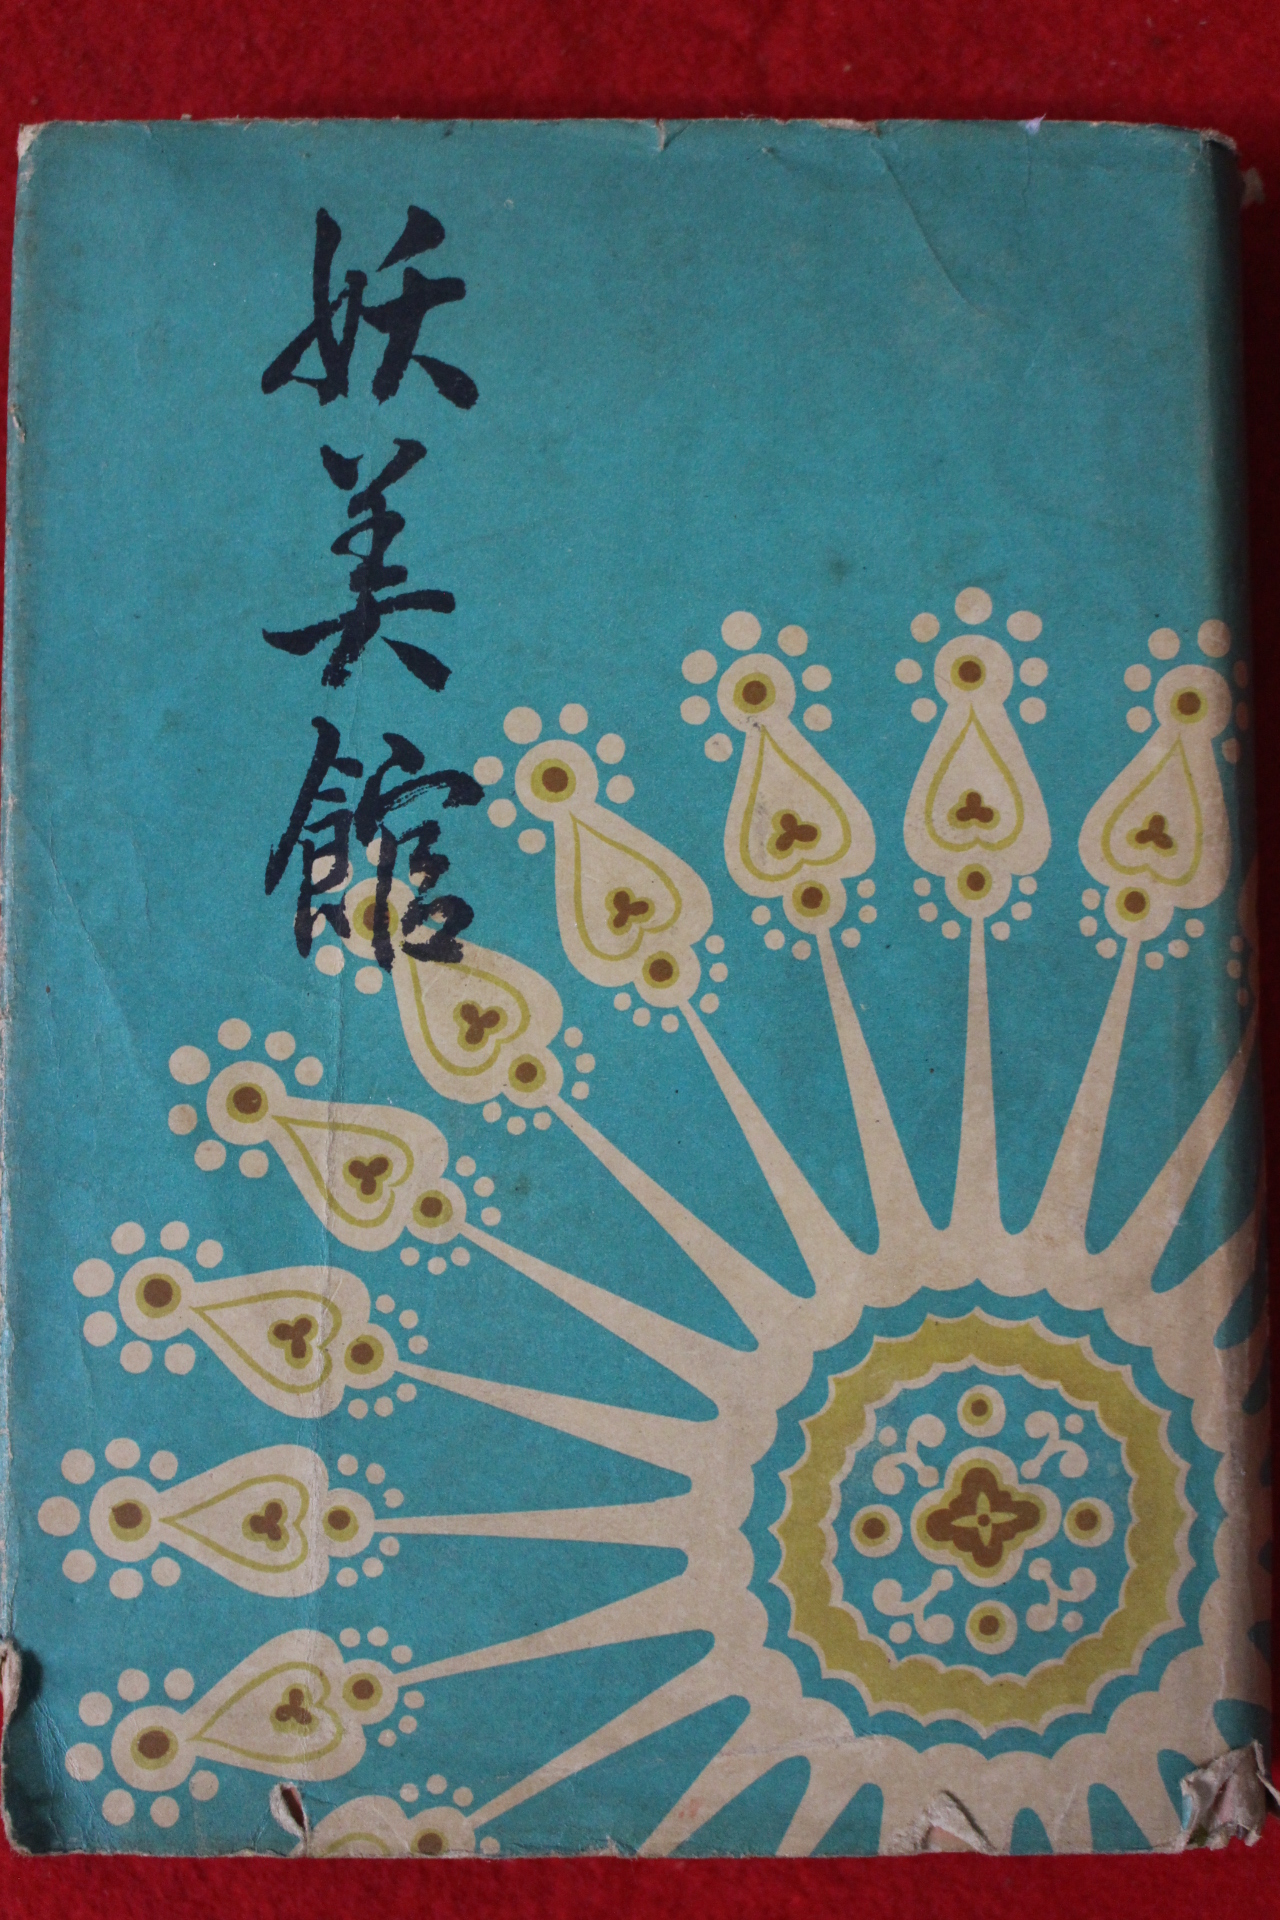 妖美館